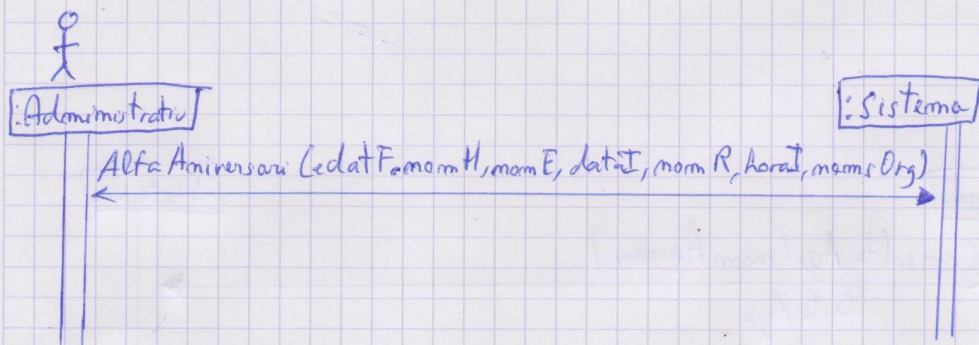 :Administratiu
:Sistema
AltaAniversari (edatF, nomH, nomE, dataI, nomR, horaI, nomsOrg)